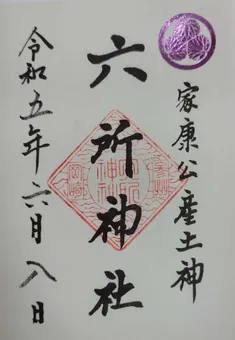 家康公産土神
六所神社
令和五年六月八日